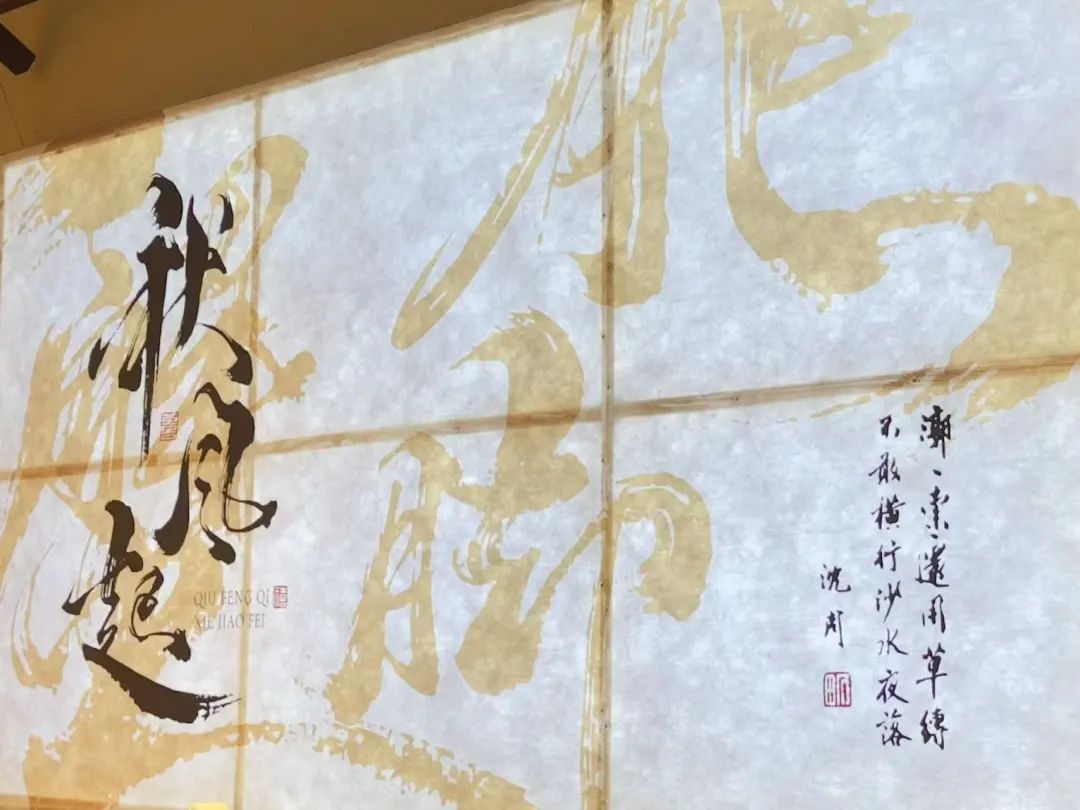 秋风起
QIU FENG QI
XIE JIAO FEI
蟹脚肥
郭、索、還用草縛
不敢橫行沙水夜落
沈周